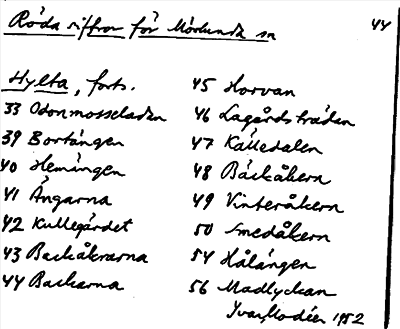 Röda siffror för Mörlunda sn
44
Hylta, forts.
33 Odonmosseladan
39 Bortängen
40 Hemängen
41 Ängarna
42 Kullegärdet
43 Backåkrarna
44 Backarna
45 Horvan
46 Lagårdsträdan
47 Källedalen
48 Bäckåkern
49 Vinteråkern
50 Smedåkern
54 Hålängen
56 Madlyckan
Ivar Modéer 1952